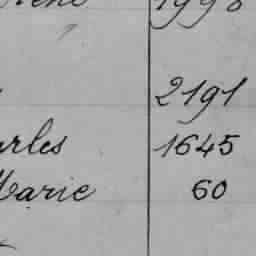 1998
2191
arles 1645
Marie 60